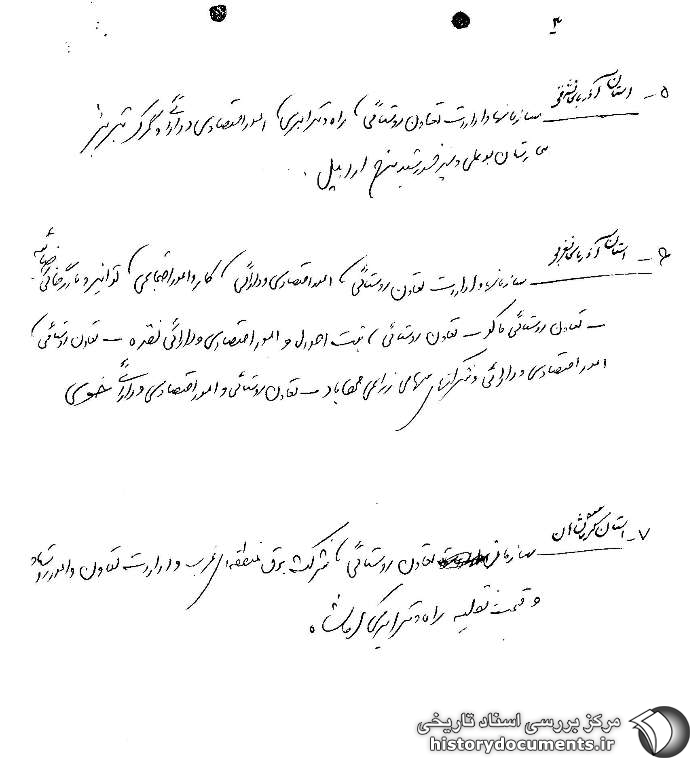 ۳
۵ـ استان آذربایجانشرقی سازمانها و ادارات تعاون روستائی، راه و ترابری، امور اقتصادی و دارائی و گمرک تبریز
بیمارستان بوعلی و شیر خورشید سرخ اردبیل .
۶ـ استان آذربایجانغربی سازمانها و ادارات تعاون روستائی، امور اقتصادی و دارائی، کار و امور اجتماعی، توانیر و بازرگانی رضائیه
ـ تعاون روستائی ماکو ـ تعاون روستائی، ثبت احوال و امور اقتصادی و دارائی نقده ـ تعاون روستائی،
امور اقتصادی و دارائی و شرکتهای سهامی زراعی مهاباد ـ تعاون روستائی و امور اقتصادی و دارائی خوی
۷ـ استان کرمانشاهان سازمان تعاون روستائی، شرکت برق منطقه‌ای غرب و اداره تعاون و امور روستاها
و قسمت نقلیه راه و ترابری کرمانشاه
مرکز بررسی اسناد تاریخی
historydocuments.ir